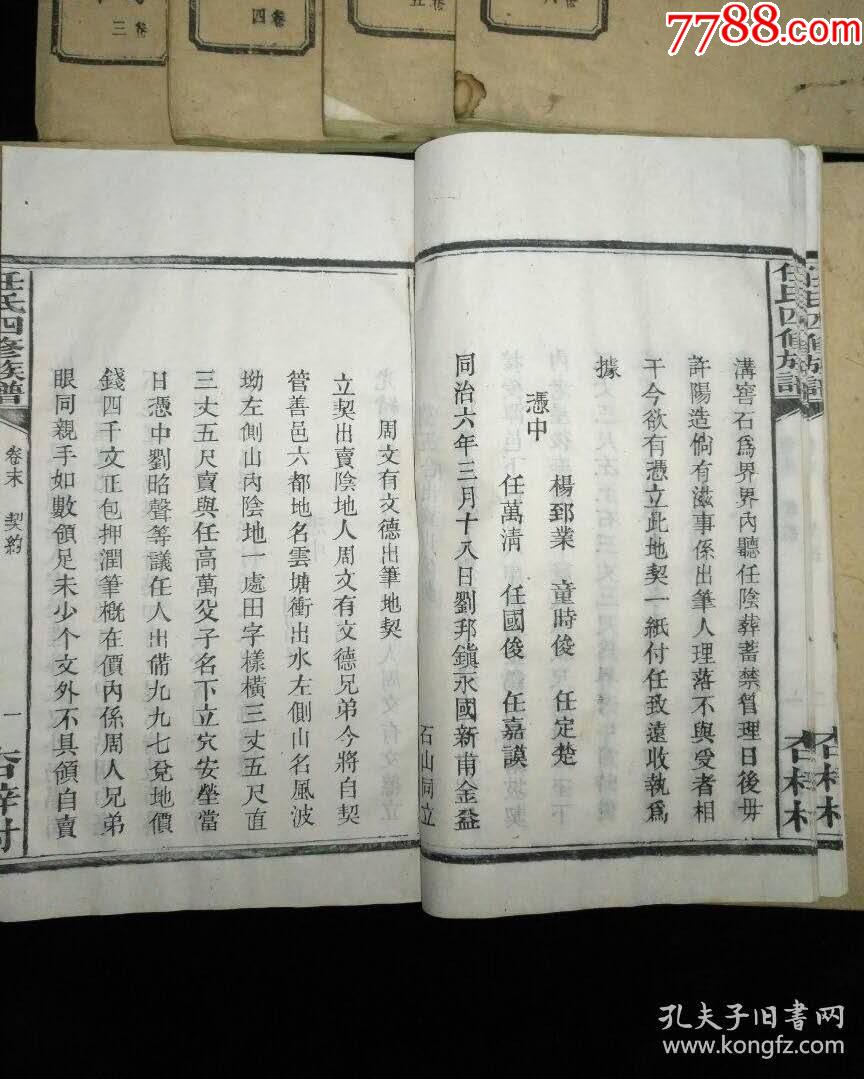 7788.com
卷三
卷四
卷五
任氏四修族譜
溝窖石爲界界內聽任陰葬蓄禁管理日後毋
許陽造倘有滋事係出筆人理落不與受者相
干今欲有憑立此地契一紙付任致遠收執爲
據
憑中
楊郅業 童時俊 任定楚
任萬清 任國俊 任嘉謨
同治六年三月十八日劉邦鎭永國新甫金益
石山同立
周文有文德出筆地契
立契出賣陰地人周文有文德兄弟今將自契
管善邑六都地名雲塘衝出水左側山名風波
坳左側山內陰地一處田字樣橫三丈五尺直
三丈五尺賣與任高萬父子名下立穴安塋當
日憑中劉昭聲等議任人出備九九七兌地價
錢四千文正包押潤筆概在價內係周人兄弟
眼同親手如數領足未少个文外不具領自賣
任氏四修族譜
卷末 契約
一
杏梓村
孔夫子旧书网
www.kongfz.com